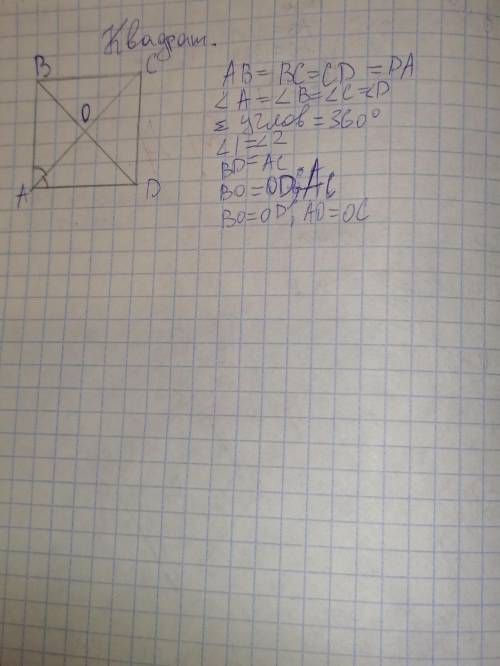 Квадрат.
B
C
O
A
D
AB = BC = CD = DA
∠A = ∠B = ∠C = ∠D
Σ углов = 360°
∠1 = ∠2
BD = AC
BO = OD; AC
BO = OD; AO = OC